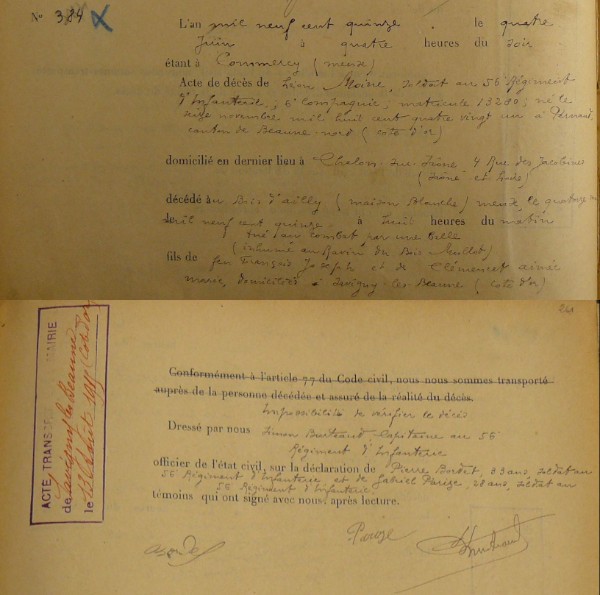 N° 384
L'an mil neuf cent quinze, le quatre
Juin à quatre heures du soir
étant à Commercy (meuse)
Acte de décès de Léon Moine, soldat au 56e Régiment
d'Infanterie, 6e Compagnie, matricule 13280, né le
seize novembre mil huit cent quatre vingt un à Pernand
canton de Beaune-nord (côte d'or)
domicilié en dernier lieu à Chalon-sur-Saône 4 Rue des Jacobines
(Saône et Loire)
décédé au Bois d'ailly (maison Blanche) meuse le quatorze
mil neuf cent quinze, à huit heures du matin
tué au combat par une balle
(inhumé au Ravin du Bois Mullot)
fils de feu François Joseph et de Clémencet aimée
marie, domiciliés à Savigny-les-Beaune (Côte d'or)
240
ACTE TRANSCRIT MAIRIE
de Savigny les Beaune
le 13 Août 1915 (Côte d'or)
Conformément à l'article 77 du Code civil, nous nous sommes transporté
auprès de la personne décédée et assuré de la réalité du décès.
Impossibilité de vérifier le décès
Dressé par nous Simon Burteaud, Capitaine au 56
Régiment d'Infanterie
officier de l'état civil, sur la déclaration de Pierre Bordat, 33 ans, soldat au
56 Régiment d'Infanterie, et de Gabriel Parize, 28 ans, soldat au
56 Régiment d'Infanterie
témoins qui ont signé avec nous, après lecture.
Parize